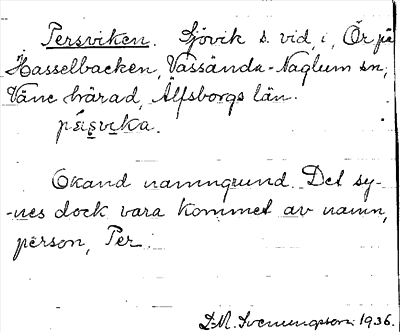 Persviken. Sjövik s. vid, i, Ör på
Hasselbacken, Vassända-Naglum sn,
Väne härad, Älfsborgs län.
pä̀svika.
Okänd namngrund. Det sy-
-nes dock vara kommet av namn,
person, Per.
D.M. Svenungsson 1936.